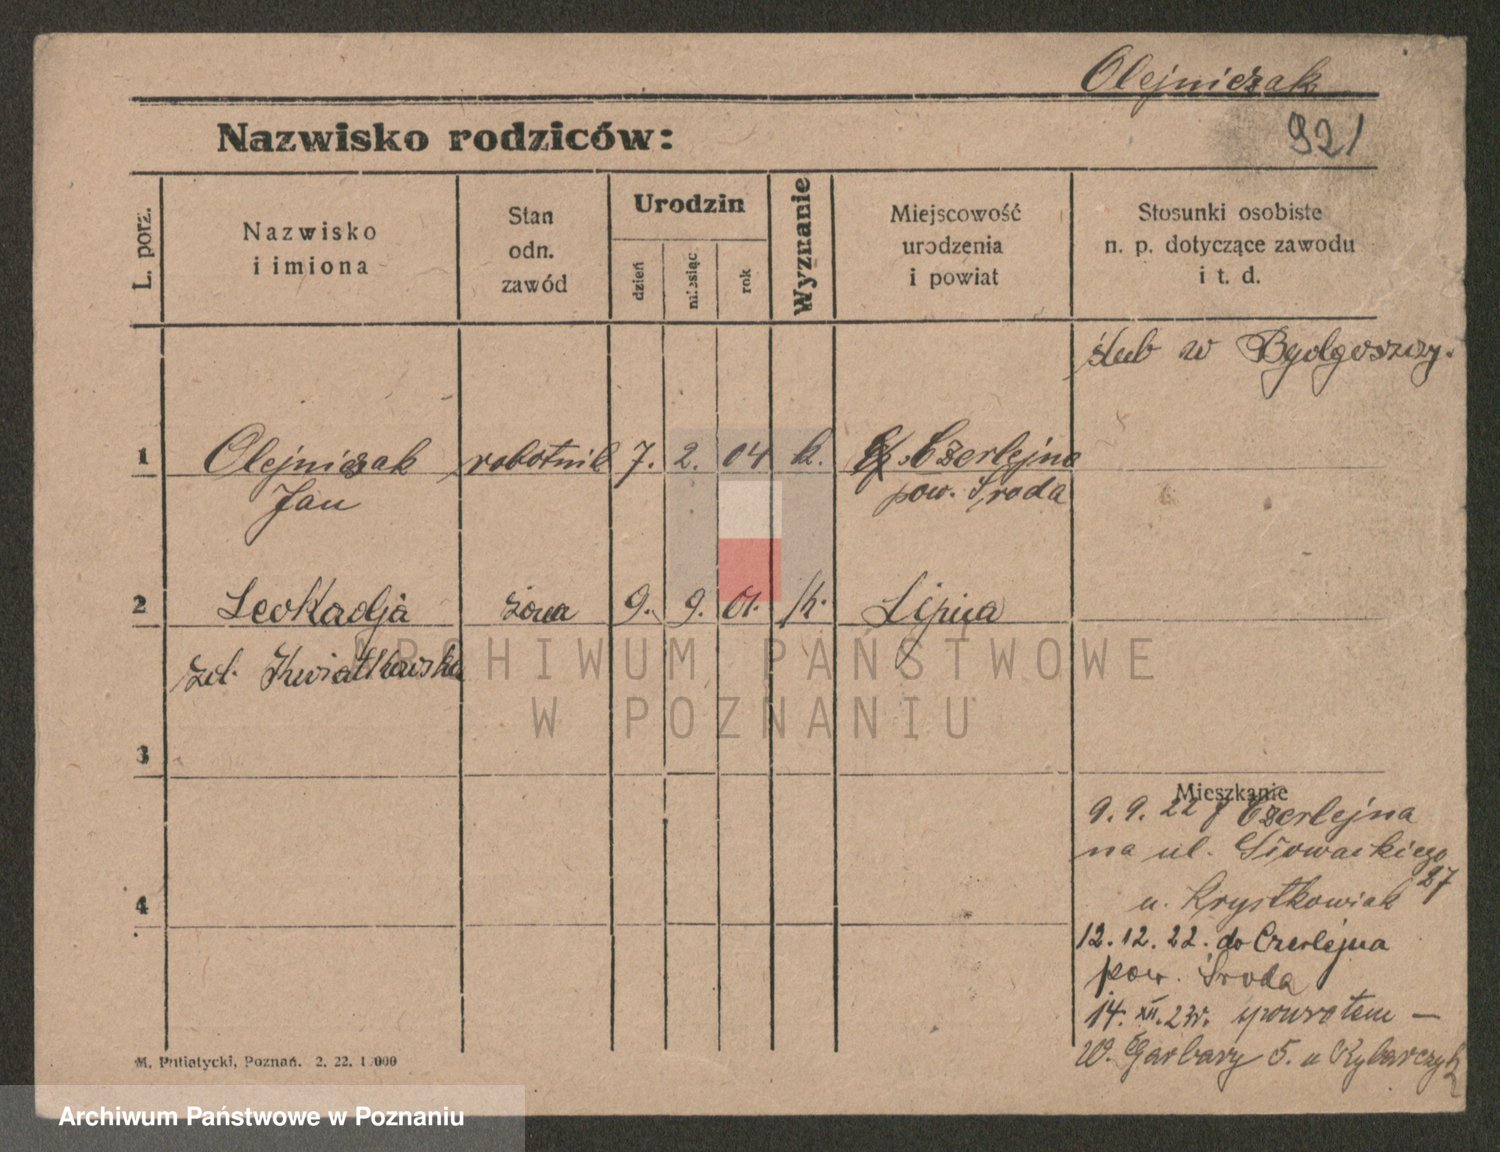 Olejniczak
921
Nazwisko rodziców:
L. porz.
Nazwisko
i imiona
Stan
odn.
zawód
Urodzin
dzień
miesiąc
rok
Wyznanie
Miejscowość
urodzenia
i powiat
Stosunki osobiste
n. p. dotyczące zawodu
i t. d.
ślub w Bydgoszczy.
1 Olejniczak robotnik 7. 2. 04 k. Czerlejno
Jan pow. Środa
2 Leokadja żona 9. 9. 01. k. Lipica
Kwiatkowska
3
Mieszkanie
9. 9. 22 z Czerlejna
na ul. Słowackiego 27
u. Krystkowiak
4
12. 12. 22. do Czerlejna
pow. Środa
14. XII. 23r. spowrotem —
W. Garbary 5. u Rybarczyk
M. Putiatycki, Poznań. 2. 22. 1.000
ARCHIWUM PAŃSTWOWE
W POZNANIU
Archiwum Państwowe w Poznaniu